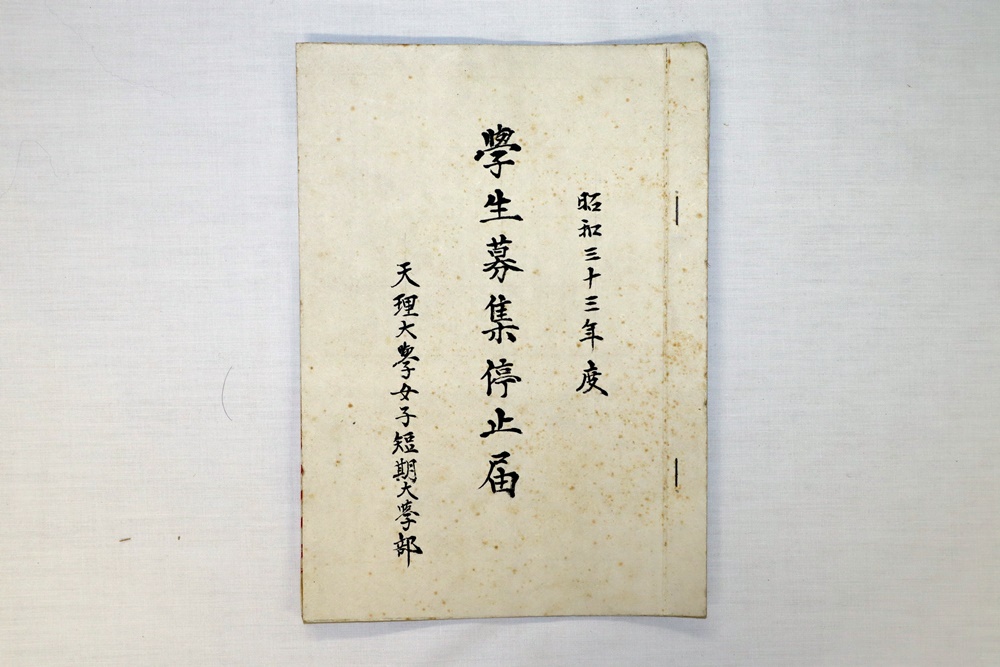 昭和三十三年度
學生募集停止届
天理大學女子短期大學部